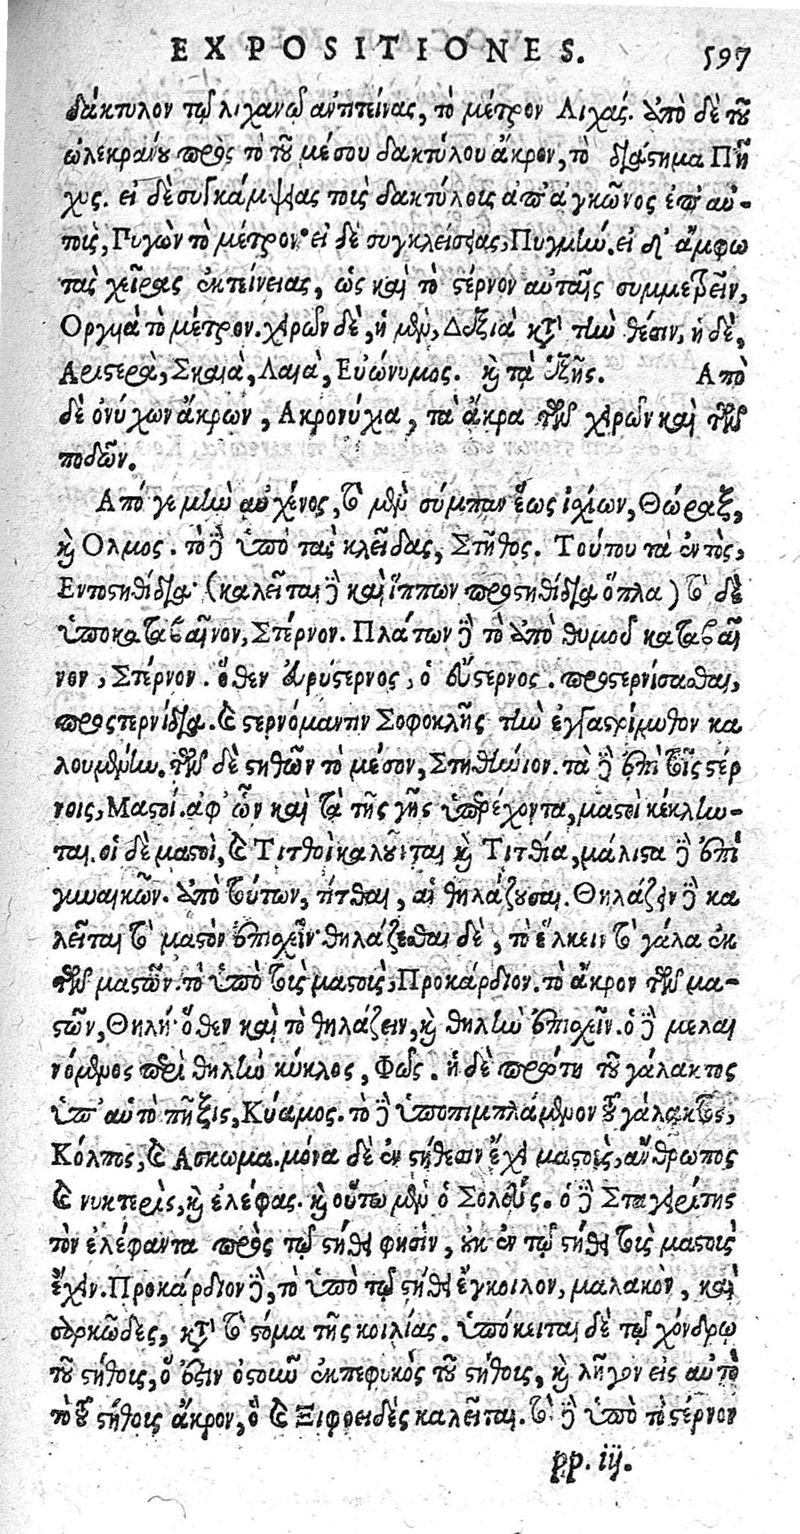 EXPOSITIONES. 597
δάκτυλον τῷ λιχανῷ ἀντιτείνας, τὸ μέτρον Λιχάς. Ἀπὸ δὲ τοῦ
ὠλεκράνου πρὸς τὸ τοῦ μέσου δακτύλου ἄκρον, τὸ διάστημα Πῆ
χυς. εἰ δὲ συγκάμψας τοὺς δακτύλοις ἀπ' ἀγκῶνος ἐπ' αὐ-
τοὺς, Πυγὼν τὸ μέτρον· εἰ δὲ συγκλείσας, Πυγμὴν. εἰ δ' ἄμφω
τὰς χεῖρας ἐκτείνειας, ὡς καὶ τὸ στέρνον αὐταῖς συμμετρεῖν,
Οργυιὰ τὸ μέτρον. χειρῶν δὲ, ἡ μὲν, Δεξιὰ κατὰ τὴν θέσιν, ἡ δὲ,
Αριστερὰ, Σκαιὰ, Λαιὰ, Εὐώνυμος. καὶ τὰ ἑξῆς. Απὸ
δὲ ὀνύχων ἄκρων, Ακρονύχια, τὰ ἄκρα τῶν χειρῶν καὶ τῶν
ποδῶν.
Από γε μὴν αὐχένος, τὸ μὲν σύμπαν ἕως ἰσχίων, Θώραξ,
καὶ Ολμος. τὸ δὲ ὑπὸ τὰς κλεῖδας, Στῆθος. Τούτου τὰ ἐντὸς,
Εντοστηθίδια· (καλεῖται δὲ καὶ ἵππων προστηθίδια ὅπλα) τὸ δὲ
ὑποκαταβαῖνον, Στέρνον. Πλάτων δὲ τὸ ἀπὸ θυμοῦ καταβαῖ
νον, Στέρνον. ὅθεν εὐρύστερνος, ὁ εὔστερνος. προστερνίσασθαι,
προστερνίδια. καὶ στερνόμαντιν Σοφοκλῆς τὴν ἐγγαστρίμυθον κα
λουμένην. τῶν δὲ στηθῶν τὸ μέσον, Στηθύνιον. τὰ δὲ ἐπὶ τοῖς στέρ
νοις, Μαστοί. ἀφ' ὧν καὶ τὰ τῆς γῆς ὑπερέχοντα, μαστοὶ κέκλην-
ται. οἱ δὲ μαστοὶ, καὶ Τιτθοὶ καλοῦνται καὶ Τιτθία, μάλιστα δὲ ἐπὶ
γυναικῶν. ἀπὸ τούτων, τίτθαι, αἱ θηλάζουσαι. Θηλάζειν δὲ κα
λεῖται τὸ μαστὸν ἐπισχεῖν· θηλάζεσθαι δὲ, τὸ ἕλκειν τὸ γάλα ἐκ
τῶν μαστῶν. τὸ ὑπὸ τοὺς μαστοὺς, Προκάρδιον. τὸ ἄκρον τῶν μα-
στῶν, Θηλή· ὅθεν καὶ τὸ θηλάζειν, καὶ θηλὴν ἐπισχεῖν. ὁ δὲ μελαι
νόμενος περὶ θηλὴν κύκλος, Φῶς. ἡ δὲ πρώτη τοῦ γάλακτος
ὑπ' αὐτὸ πῆξις, Κύαμος. τὸ δὲ ὑποπιμπλάμενον τοῦ γάλακτος,
Κόλπος, καὶ Ασκωμα. μόνα δὲ ἐν στήθεσιν ἔχει μαστοὺς, ἄνθρωπος
καὶ νυκτερὶς, καὶ ἐλέφας. καὶ οὕτω μὲν ὁ Σολεύς. ὁ δὲ Σταγειρίτης
τὸν ἐλέφαντα πρὸς τῷ στήθει φησὶν, οὐκ ἐν τῷ στήθει τοὺς μαστοὺς
ἔχειν. Προκάρδιον δὲ, τὸ ὑπὸ τῷ στήθει ἔγκοιλον, μαλακὸν, καὶ
σαρκῶδες, κατὰ τὸ στόμα τῆς κοιλίας. ὑπόκειται δὲ τῷ χόνδρῳ
τοῦ στήθοις, ὅ ἐστιν ὀστοῦν ἐκπεφυκὸς τοῦ στήθοις, καὶ λῆγον εἰς αὐτὸ
τὸ τοῦ στήθοις ἄκρον, ὃ καὶ Ξιφοειδὲς καλεῖται. τὸ δὲ ὑπὸ τὸ στέρνον
pp. iij.